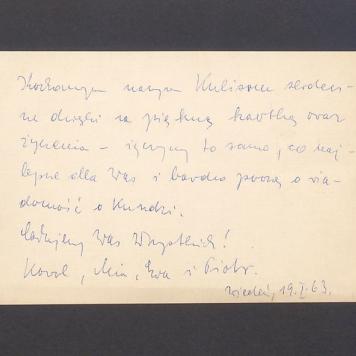 Kochanym naszym Kulisom serdecz-
ne dzięki za piękną kartkę oraz
życzenia - życzymy to samo, co naj-
lepsze dla Was i bardzo proszę o wia-
domość o Kundzi.
Całujemy Was Wszystkich!
Karol, Mia, Ewa i Piotr.
Wiedeń, 19.I.63.